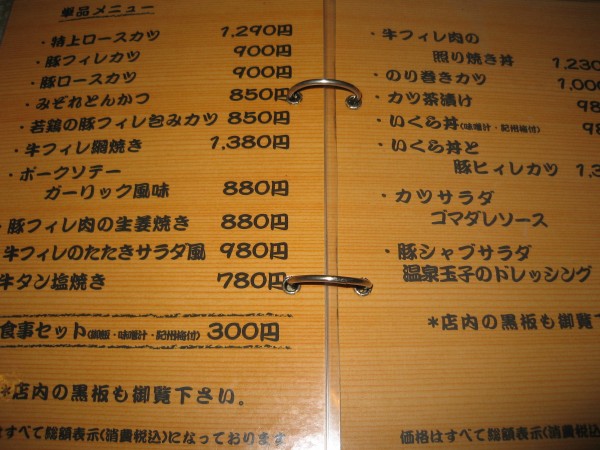 単品メニュー
・特上ロースカツ 1,290円
・豚フィレカツ 900円
・豚ロースカツ 900円
・みぞれとんかつ 850円
・若鶏の豚フィレ包みカツ 850円
・牛フィレ網焼き 1,380円
・ポークソテー
ガーリック風味 880円
・豚フィレ肉の生姜焼き 880円
牛フィレのたたきサラダ風 980円
牛タン塩焼き 780円
食事セット(御飯・味噌汁・紀州梅付) 300円
*店内の黒板も御覧下さい。
はすべて総額表示(消費税込)になっております
・牛フィレ肉の
照り焼き丼 1,230
・のり巻きカツ 1,00
・カツ茶漬け 98
・いくら丼(味噌汁・紀州梅付) 98
・いくら丼と
豚ヒィレカツ 1,3
・カツサラダ
ゴマダレソース
・豚シャブサラダ
温泉玉子のドレッシング
*店内の黒板も御覧
価格はすべて総額表示(消費税込)